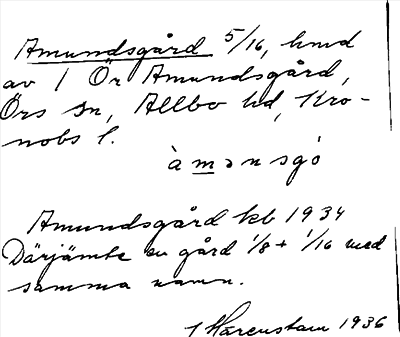 Amundsgård 5/16, hmd
av 1 Ör Amundsgård,
Örs sn, Allbo hd, Kro-
nobs l.
à mənsgó
Amundsgård kb 1934
Därjämte en gård 1/8 + 1/16 med
samma namn.
Harenstam 1936